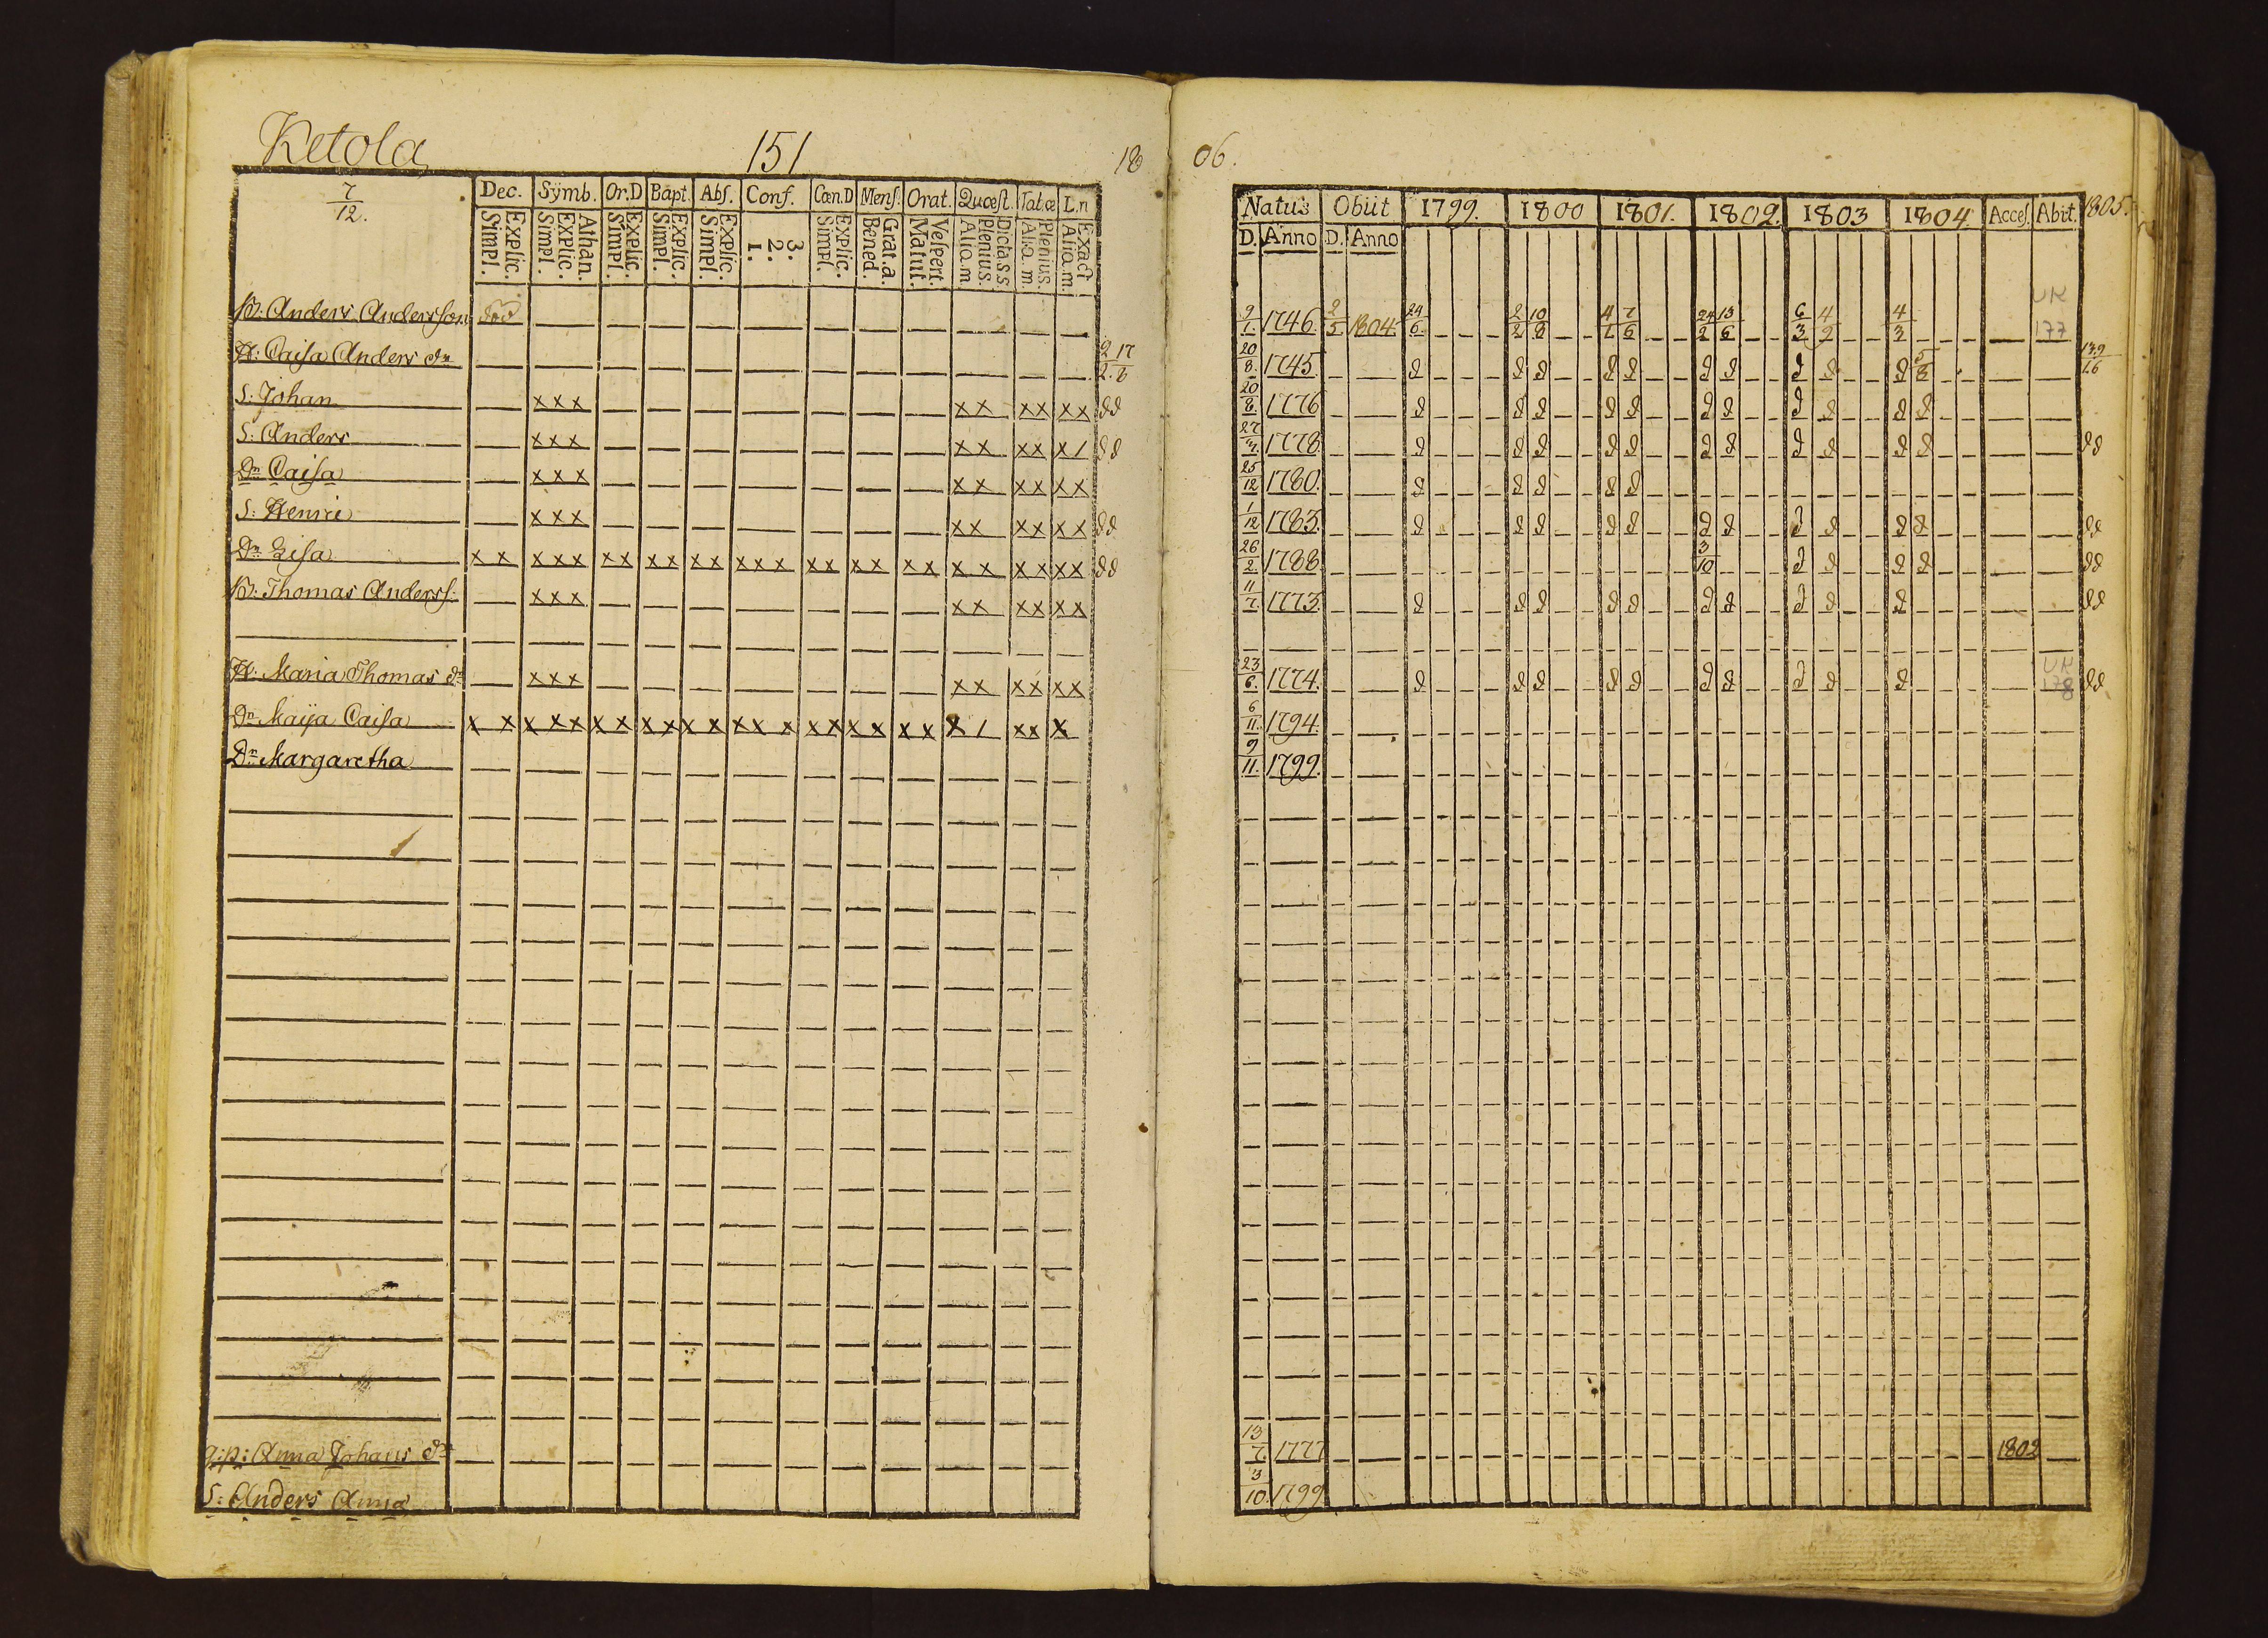 Ketola
151
18
7/12.
Dec. Symb. Or.D Bapt. Abs. Conf. Cœn.D Mens. Orat. Quæst. Tat.œ L.n
Explic. Simpl. Athan. Explic. Simpl. Explic. Simpl. Explic. Simpl. Explic. Simpl. 3. 2. 1. Explic. Simpl. Grat.a. Bened. Vespert. Matut. Dicta.s.s Plenius. Alia.m Plenius. Alia.m Exact Alia.m.
B: Anders Andersson död
H: Caisa Anders dr 2/2. 17/8
S: Johan xxx xx xx xx dd
S: Anders xxx xx xx x/ dd
Dr Caisa xxx xx xx xx
S: Henric xxx xx xx xx dd
Dr Lisa xx xxx xx xx xx xxx xx xx xx xx xx xx dd
B: Thomas Anderss. xxx xx xx xx
H: Maria Thomas dr xxx xx xx xx
Dr Maija Caisa xx xxx xx xx xx xxx xx xx xx x/ xx x
Dr Margaretha
Anna Johans dr
S: Anders Anna
06.
Natus Obiit 1799. 1800 1801. 1802. 1803 1804. Acces. Abiit. 1805.
D. Anno D. Anno
9/1. 1746. 2/5 1804. 24/6. 2/2 10/8 4/1 7/6 24/2 13/6 6/3 4/9 4/3 UK 177
20/8 1745. d dd dd dd dd d 5/8
20/8. 1776 d dd dd dd dd dd
27/3. 1778. d dd dd dd dd dd dd
25/12 1780. d dd dd
1/12 1783. d dd dd dd dd dd dd
26/2. 1788. 3/10 dd dd dd
11/7. 1773. d dd dd dd dd d dd
23/6. 1774. d dd dd dd dd d UK 178 dd
6/11. 1794.
9/11. 1799.
13/7. 1777 1802
3/10. 1799